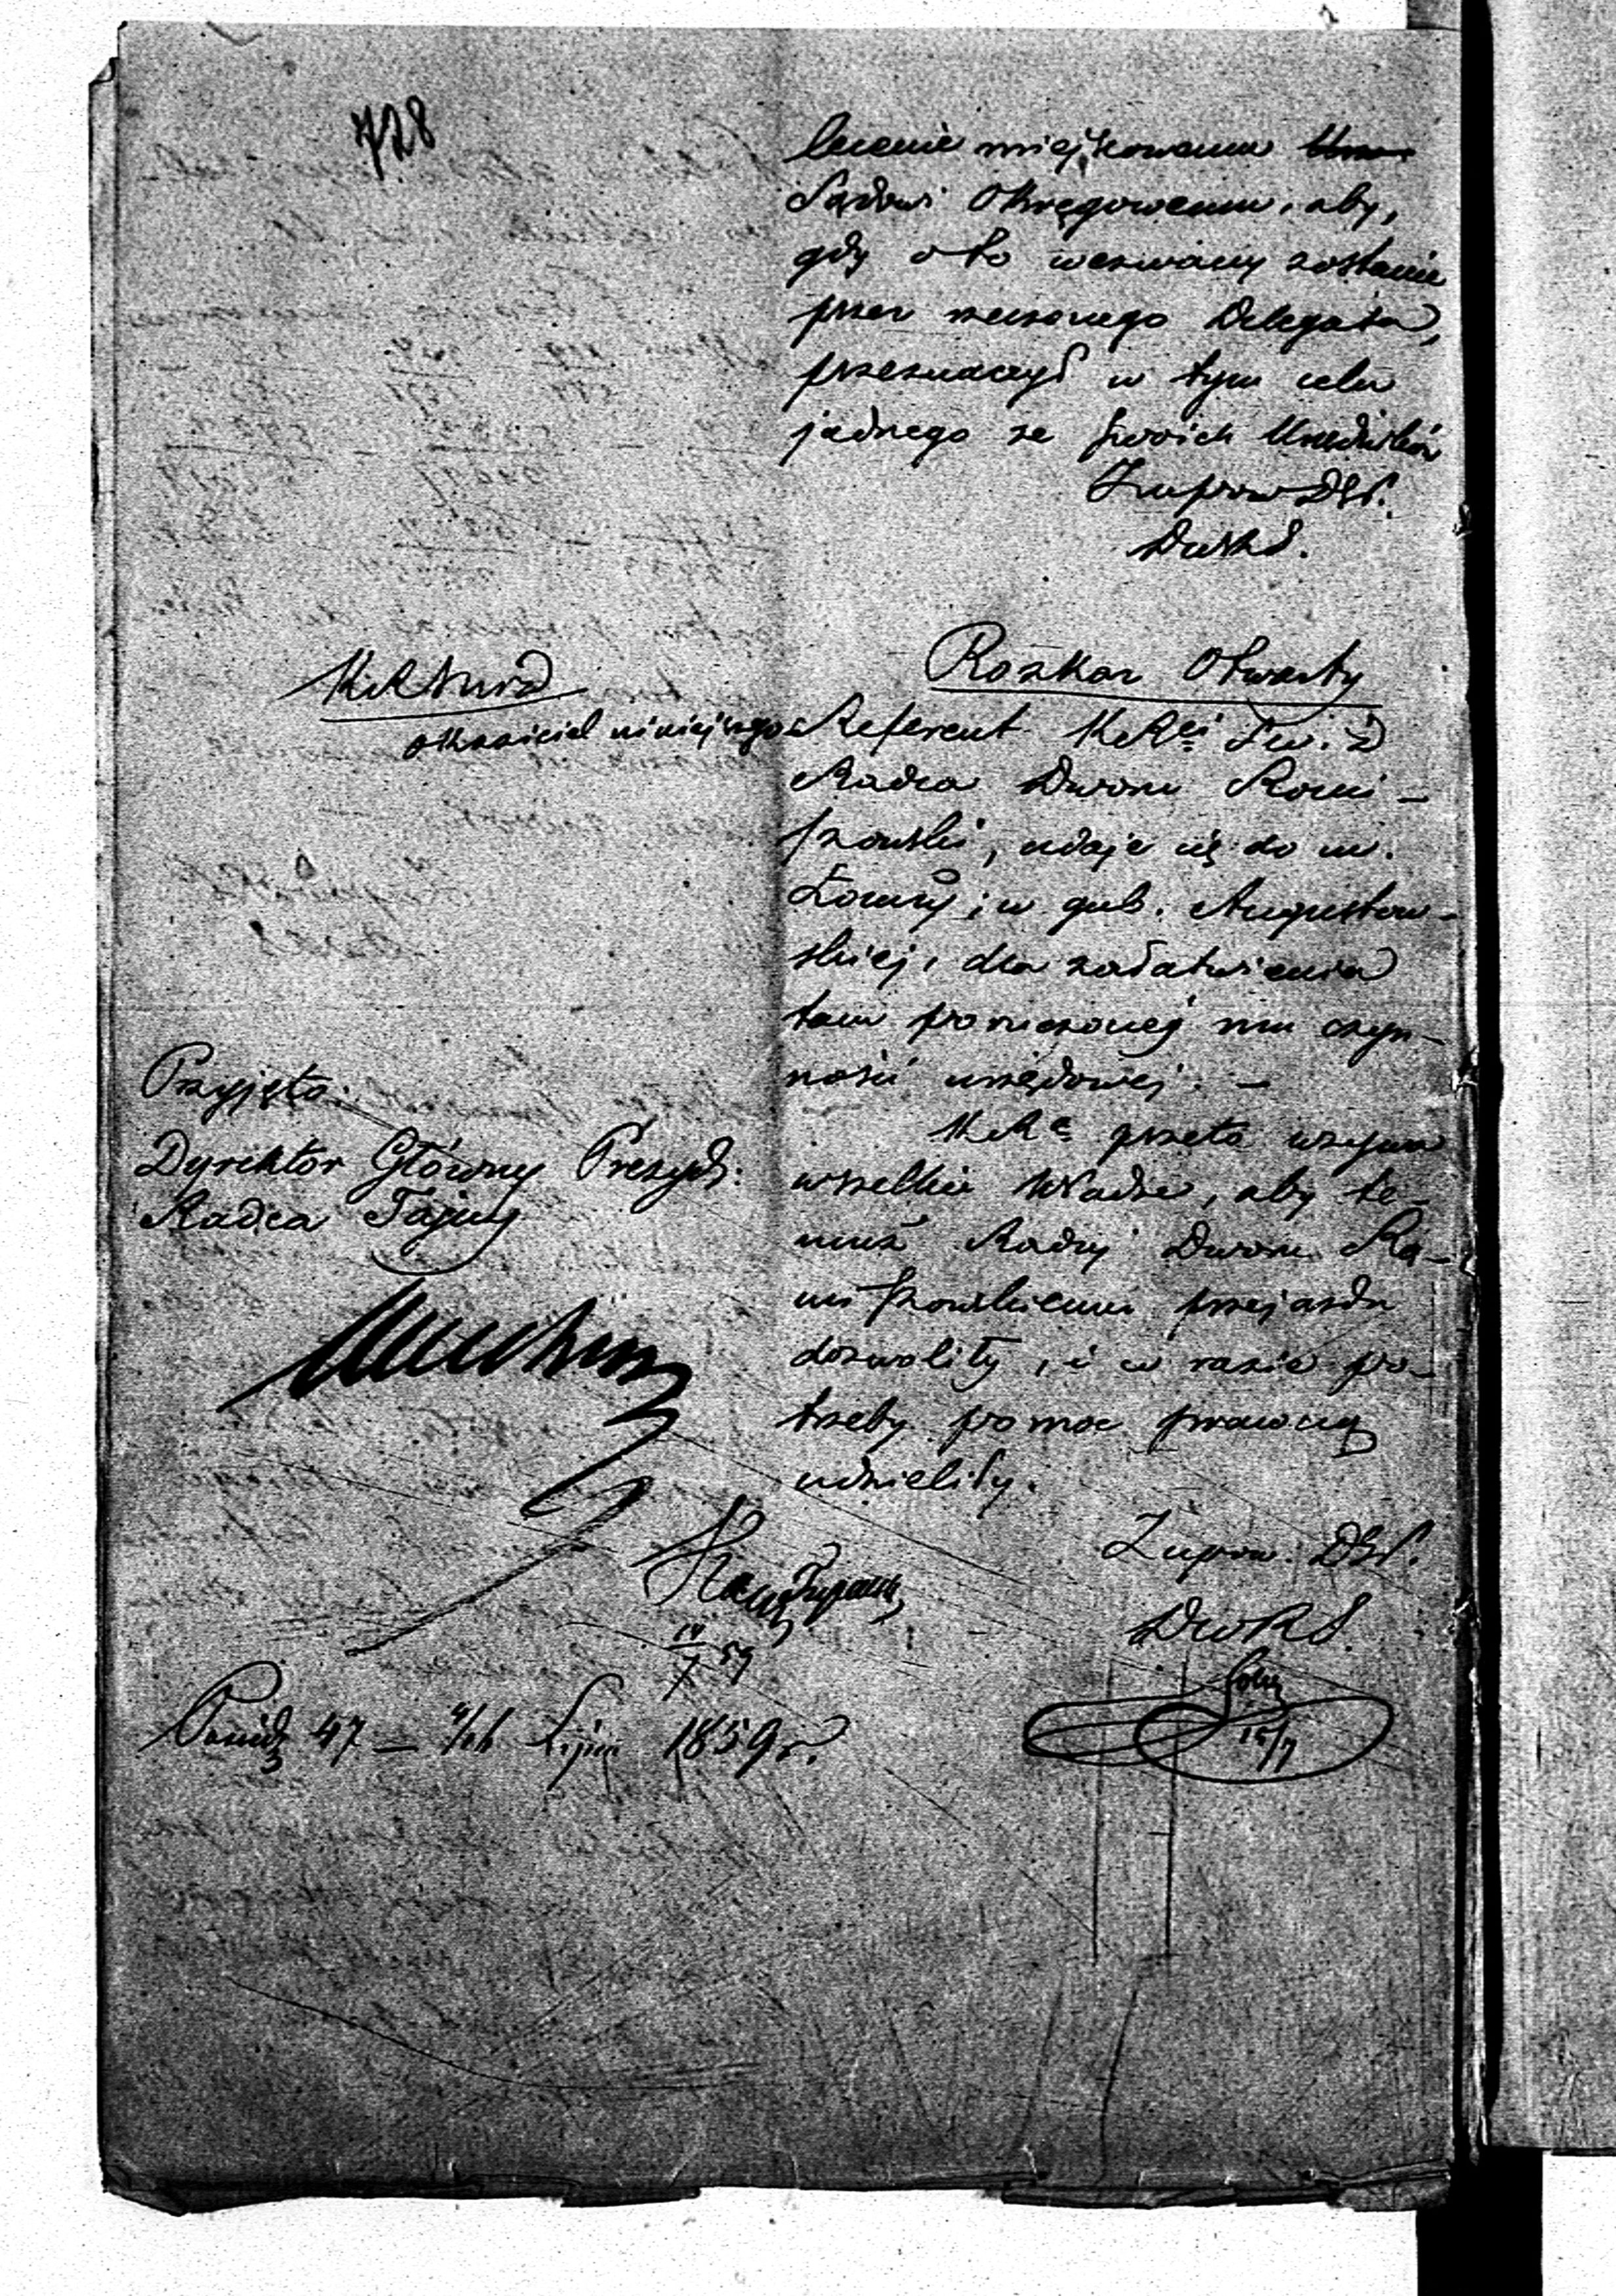 728
lecenie miejscowemu
Sądowi Okręgowemu, aby,
gdy o to wezwany zostanie
przez rzeczonego Delegata,
przeznaczył w tym celu
jednego ze swoich Urzędników
Z upow. DGP.
DwRS.
Rozkaz Otwarty
KRSwiD
okaziciel niniejszego
Referent KRcji Sw. i D
Radca Dworu Romi-
szowski, udaje się do m.
Łomży, w gub. Augustow-
skiej, dla załatwienia
tam poruczonej mu czyn-
ności urzędowej. —
KRa przeto wzywa
wszelkie Władze, aby te-
muż Radcy Dworu Ro-
miszowskiemu przejazdu
dozwoliły, i w razie po-
trzeby pomoc prawną
udzieliły.
Z upow. DGP.
DwRS.
15/7
Przyjęto.
Dyrektor Główny Prezyd:
Radca Tajny
59
Posiedz 47 — Lipca 1859 r.